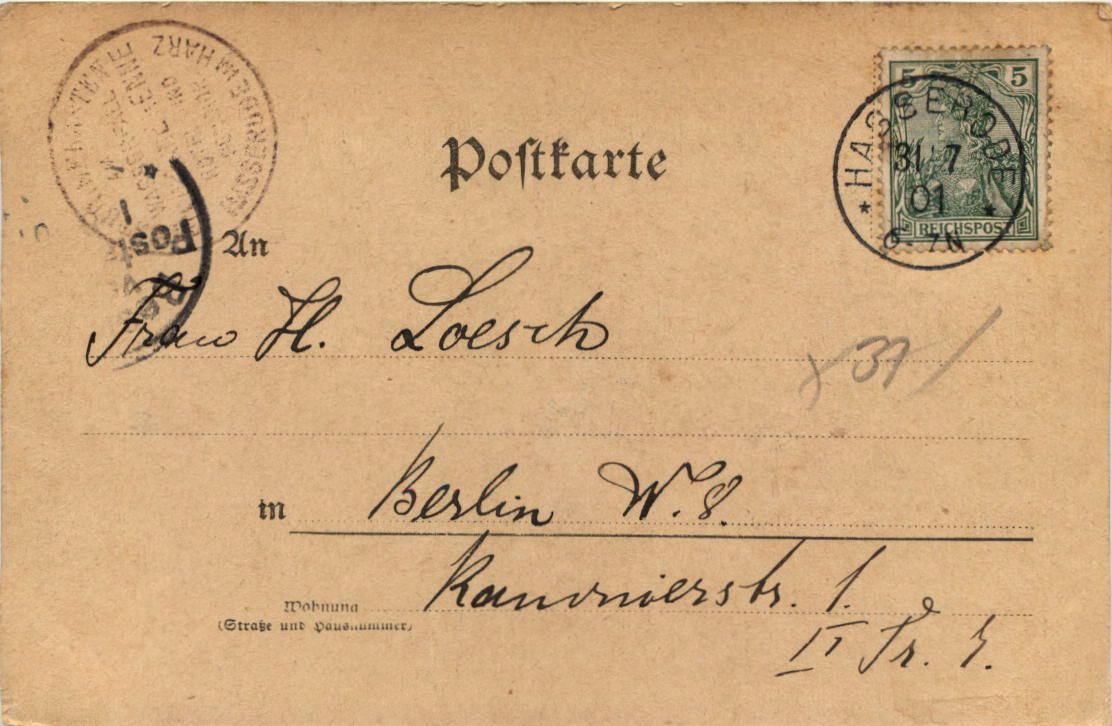 Postkarte
5 5
REICHSPOST
HASSERODE
31 7
01
6-7N
IM HARZ
HOTEL
Post
An
Frau H. Loesch
31
in Berlin W. 8.
Wohnung
(Straße und Hausnummer)
1.
II Tr.